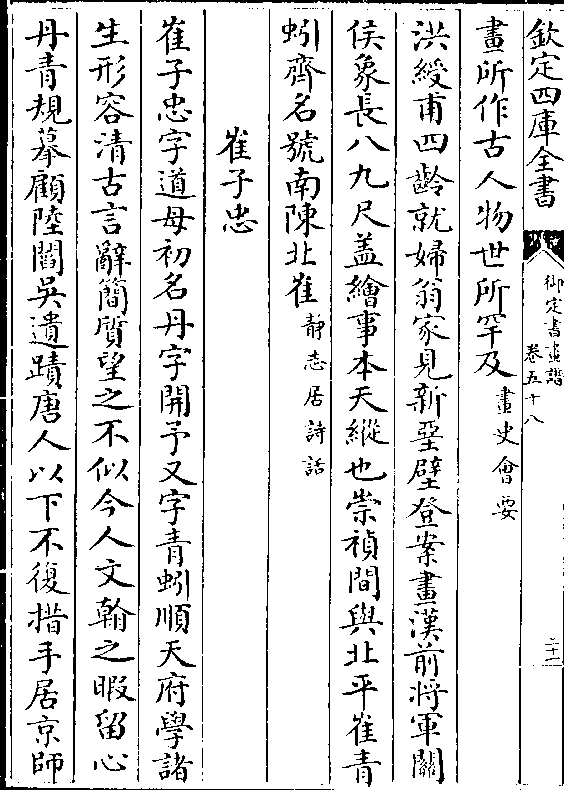 欽定四庫全書
御定書畫譜
卷五十八
二十一
畫所作古人物世所罕及畫史會要
洪綬甫四齡就婦翁家見新堊壁登案畫漢前將軍關
侯象長八九尺盖繪事本天縱也崇禎間與北平崔青
蚓齊名號南陳北崔静志居詩話
崔子忠
崔子忠字道母初名丹字開予又字青蚓順天府學諸
生形容清古言辭簡質望之不似今人文翰之暇留心
丹青規摹顧陸閻吳遺蹟唐人以下不復措手居京師